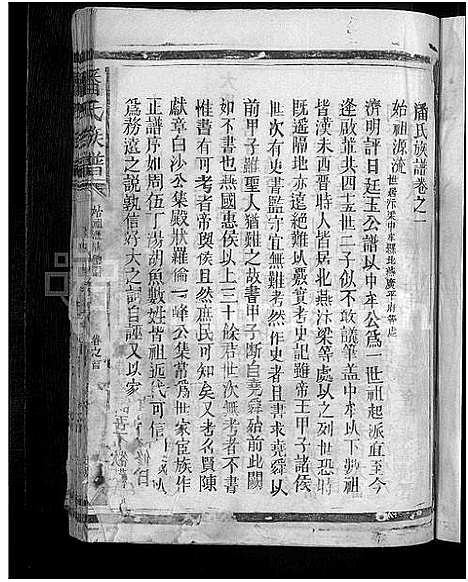 潘氏族譜卷之一
始祖源流 世居汴梁中牟縣北燕廣平府等處
濟明評曰廷玉公譜以中牟公爲一世祖起派直至今
逢啟華共四十五世二子似不敢議筆蓋中牟以下夢祖
皆漢未酉晉時人皆居北燕汴梁等處以之列世恐時
既遥隔地亦遼絕難以覈實考史記雖帝王甲子諸侯
世次有史書監守宜無難考然作史者且書求堯舜以
前甲子雖聖人猶難之故書甲子斷自堯舜始前此闕
如不書也燕國惠侯以上三十餘君世次無考者不書
惟書有可考者帝與侯且然庶民可知矣又考名賢陳
獻章白沙公集殿狀羅倫一峰公集常爲世家宦族作
正譜序如周伍丁湯胡魚數姓皆祖近代可信
爲務遠之說孰信好大之詞自誣又以家
潘氏族譜
始祖
卷之首